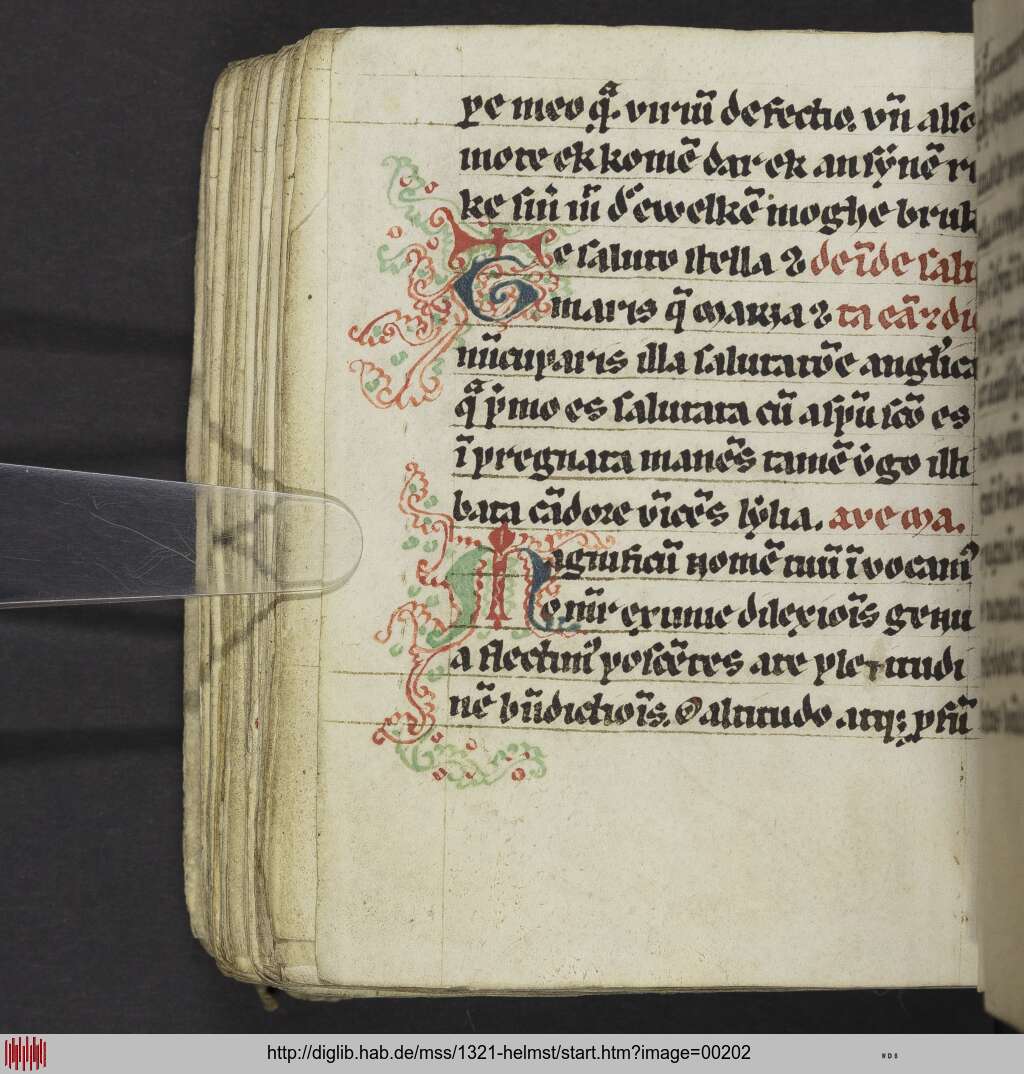 pe meo qͣ. viriū defectio. vn̄ also
mote ek komē dar ek an sẏnē ri
ke sin̄ iū dͤ ewelkē moghe bruk
Te saluto stella ⁊ deīde salu
maris q̄ maria ⁊ ta cādi
nūcuparis illa salutatōe angl'ica
qͣ pͥmo es salutata cū a sp̄u scō es
ī pregnata manēs tamē vͥgo illi
bata cādore vīcēs lẏlia. ave ma.
Magnificū nomē tuū ī vocam⁹
te mr̄ eximie dilexiōis genu
a flectim⁹ poscētes a te pletitudi
nē bn̄dictiōis. O altitudo atqꝫ ꝓfū
http://diglib.hab.de/mss/1321-helmst/start.htm?image=00202